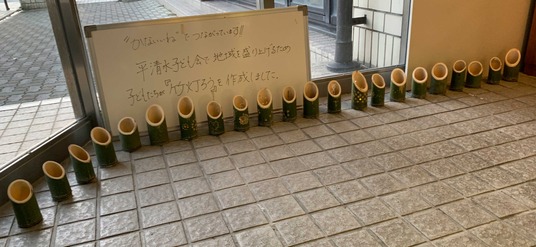 "かせない・ね"でつながっています!!
平清水子ども会で地域を盛り上げるため
子どもたちが竹灯ろうを作成しました。